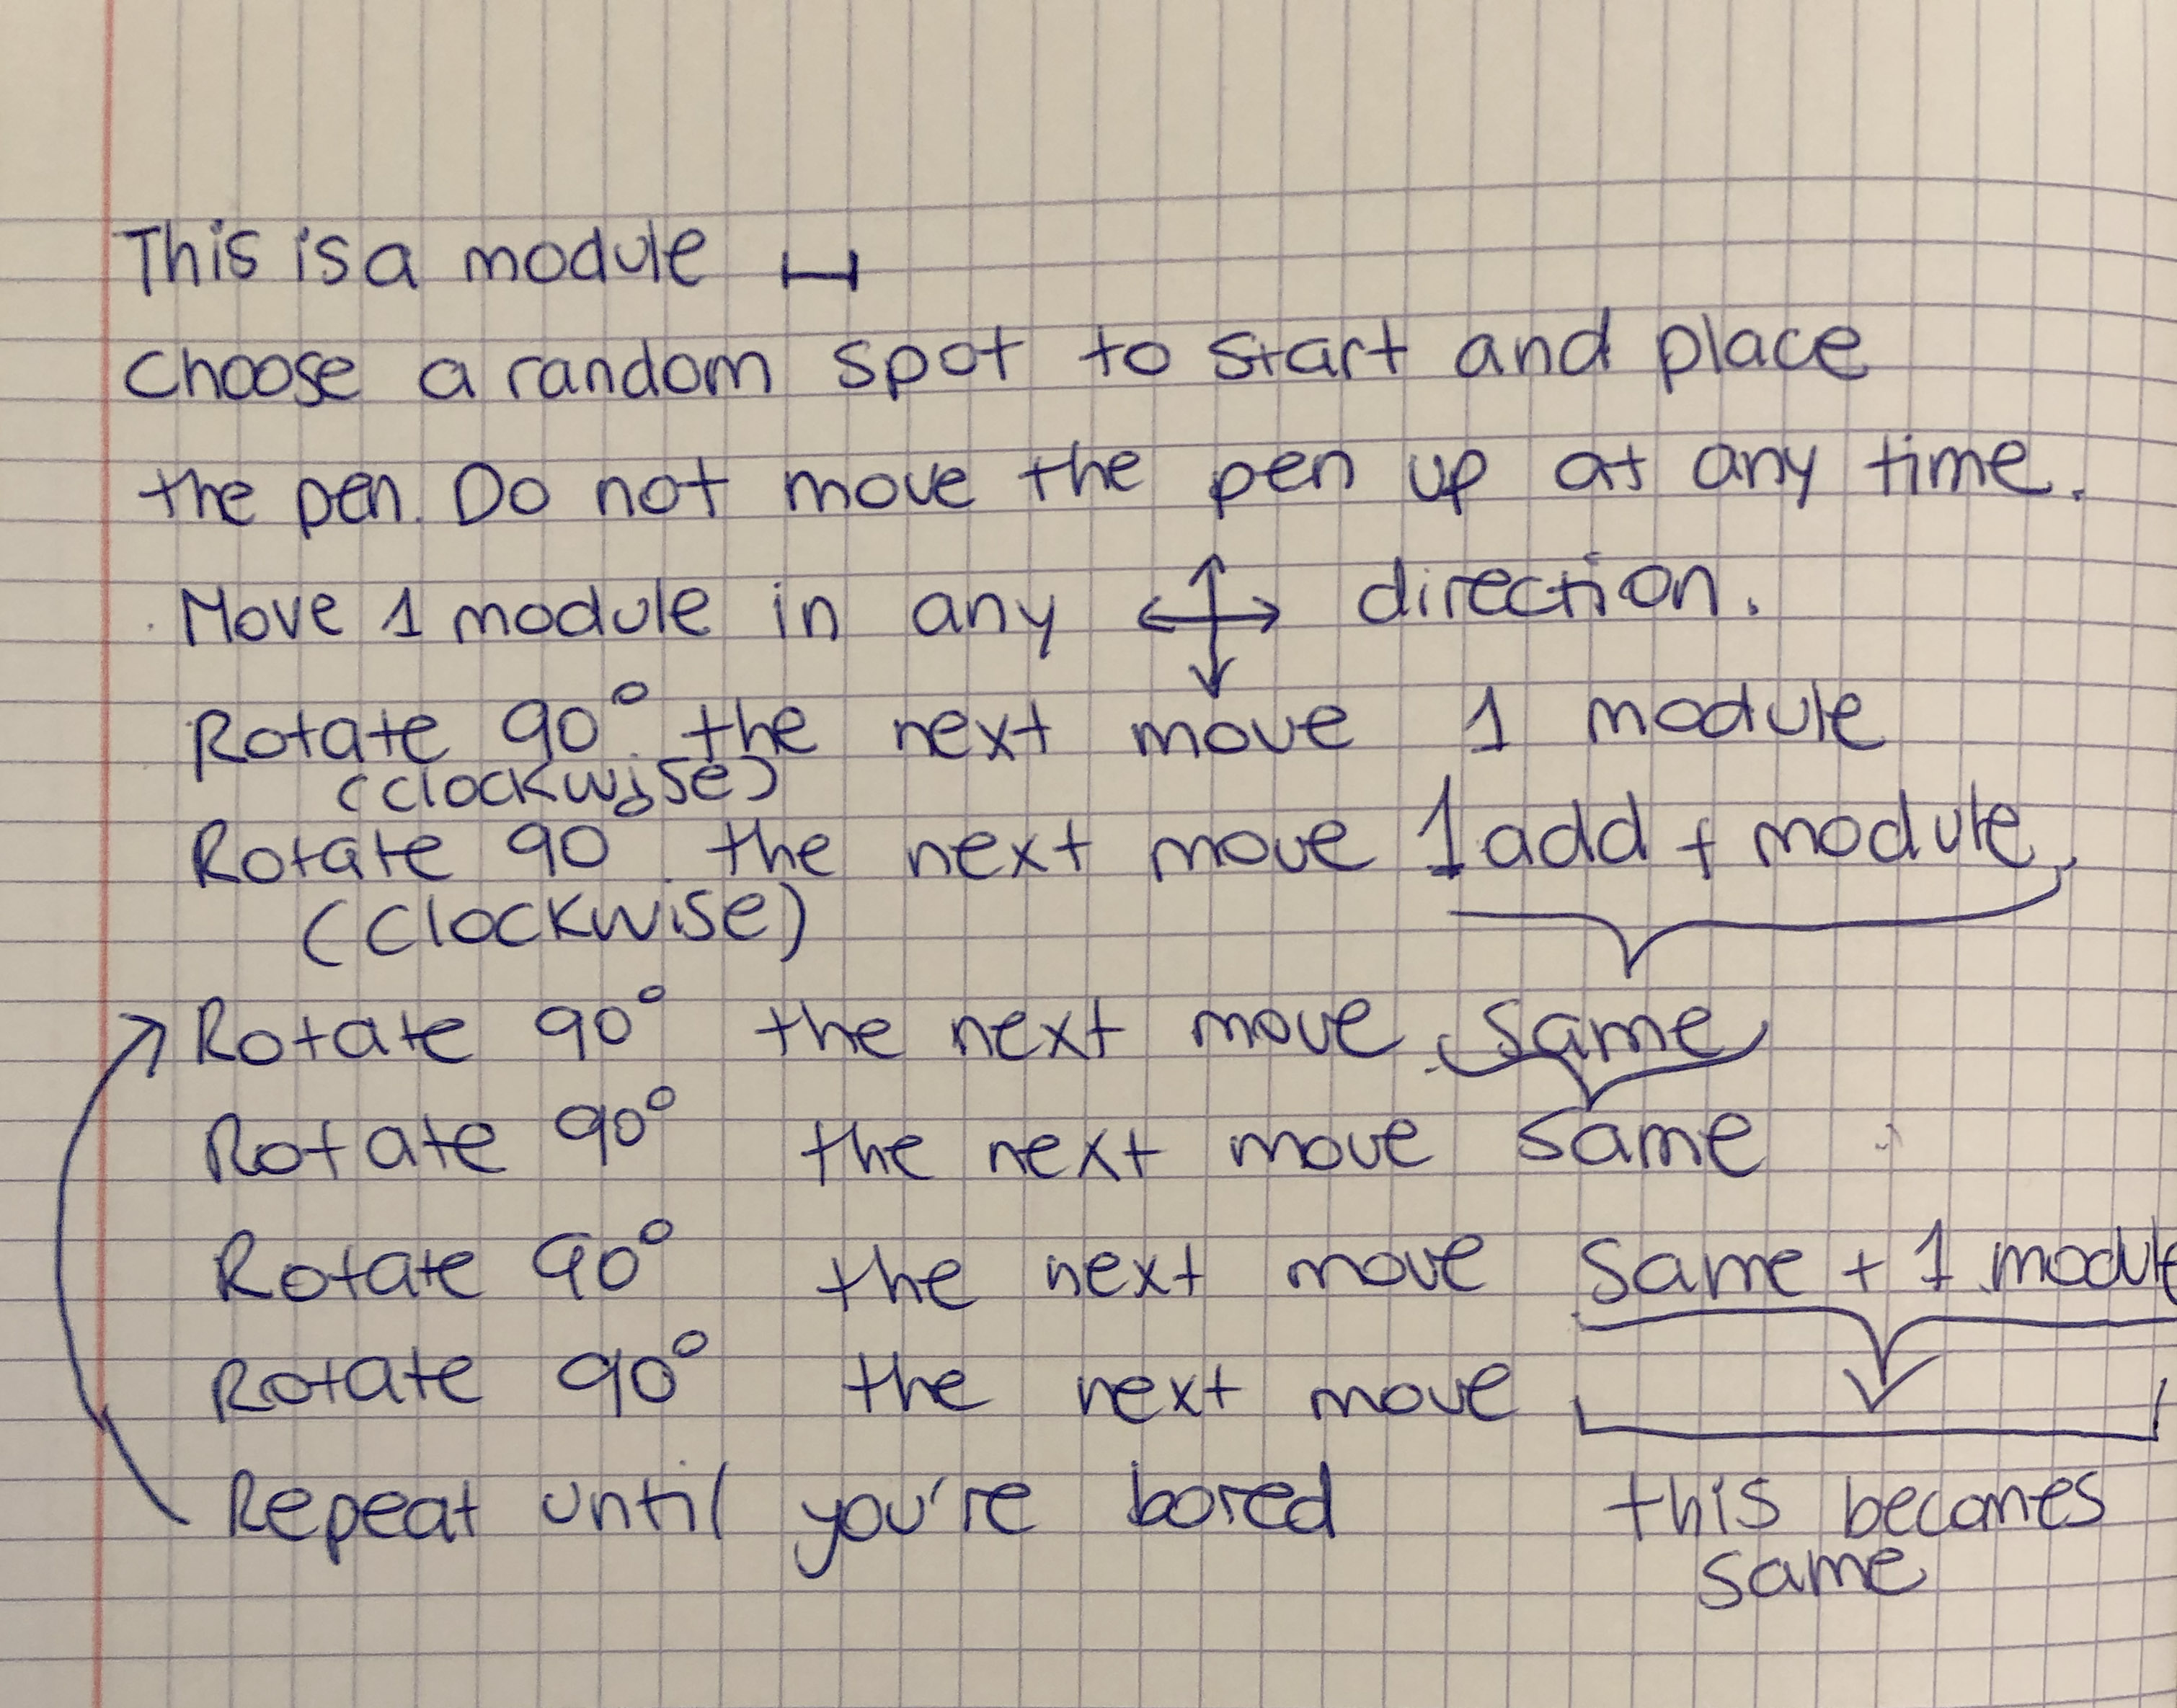 This is a module
Choose a random spot to start and place
the pen. Do not move the pen up at any time.
Move 1 module in any direction.
Rotate 90° the next move 1 module
(clockwise)
Rotate 90 the next move 1 add + module
(clockwise)
Rotate 90° the next move same
Rotate 90° the next move same
Rotate 90° the next move same + 1 module
Rotate 90° the next move
Repeat until you're bored this becomes
same